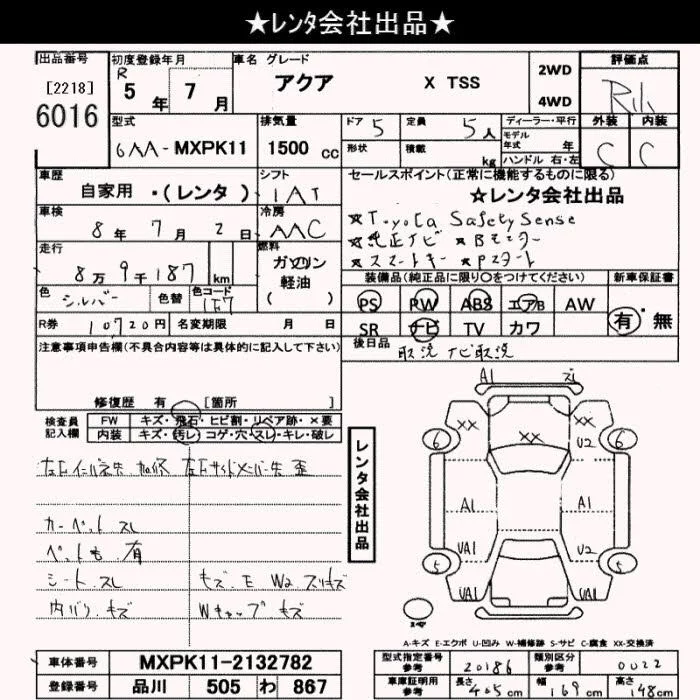 ★レンタ会社出品★
出品番号 初度登録年月 車名 グレード 2WD 評価点
[2218] R 5年 7月 アクア X TSS 4WD
6016
型式 排気量 ドア 5 定員 5人 ディーラー・平行 外装 内装
6AA-MXPK11 1500cc 形状 積載 kg モデル年式 年 C C
ハンドル 右・左
車歴 シフト セールスポイント(正常に機能するものに限る)
自家用 ・(レンタ) IAT ☆レンタ会社出品
車検 冷房 ★Toyota Safety Sense
8年 7月 2日 AAC ★純正ナビ ★Bモニター
走行 燃料 ★スマートキー ★Pスタート
8万 9千187 km ガソリン
軽油
( )
装備品(純正品に限り○をつけてください) 新車保証書
色 シルバー 色替 色コード 1F7 PS PW ABS エアB AW 有・無
R券 10720円 名変期限 月 日 SR ナビ TV カワ
注意事項申告欄(不具合内容等は具体的に記入して下さい) 後日品 取説 ナビ取説
修復歴 有 [箇所 ]
検査員 FW キズ・飛石・ヒビ割・リペア跡・×要
記入欄 内装 キズ・汚レ・コゲ・穴・スレ・キレ・破レ
カーペット スレ
ペット毛 有
シート スレ キズ・E W2 スリキズ
内バリ キズ Wキャップ キズ
レンタ会社出品
A1
XX XX U2
6 6
A1 A1
UA1 U2
5 5
UA1 UA1
A-キズ E-エクボ U-凹み W-補修跡 S-サビ C-腐食 XX-交換済
車体番号 MXPK11-2132782 型式指定番号 参考 20186 類別区分 参考 0022
登録番号 品川 505 わ 867 車庫証明用 参考 長さ 405cm 幅 169cm 高さ 148cm